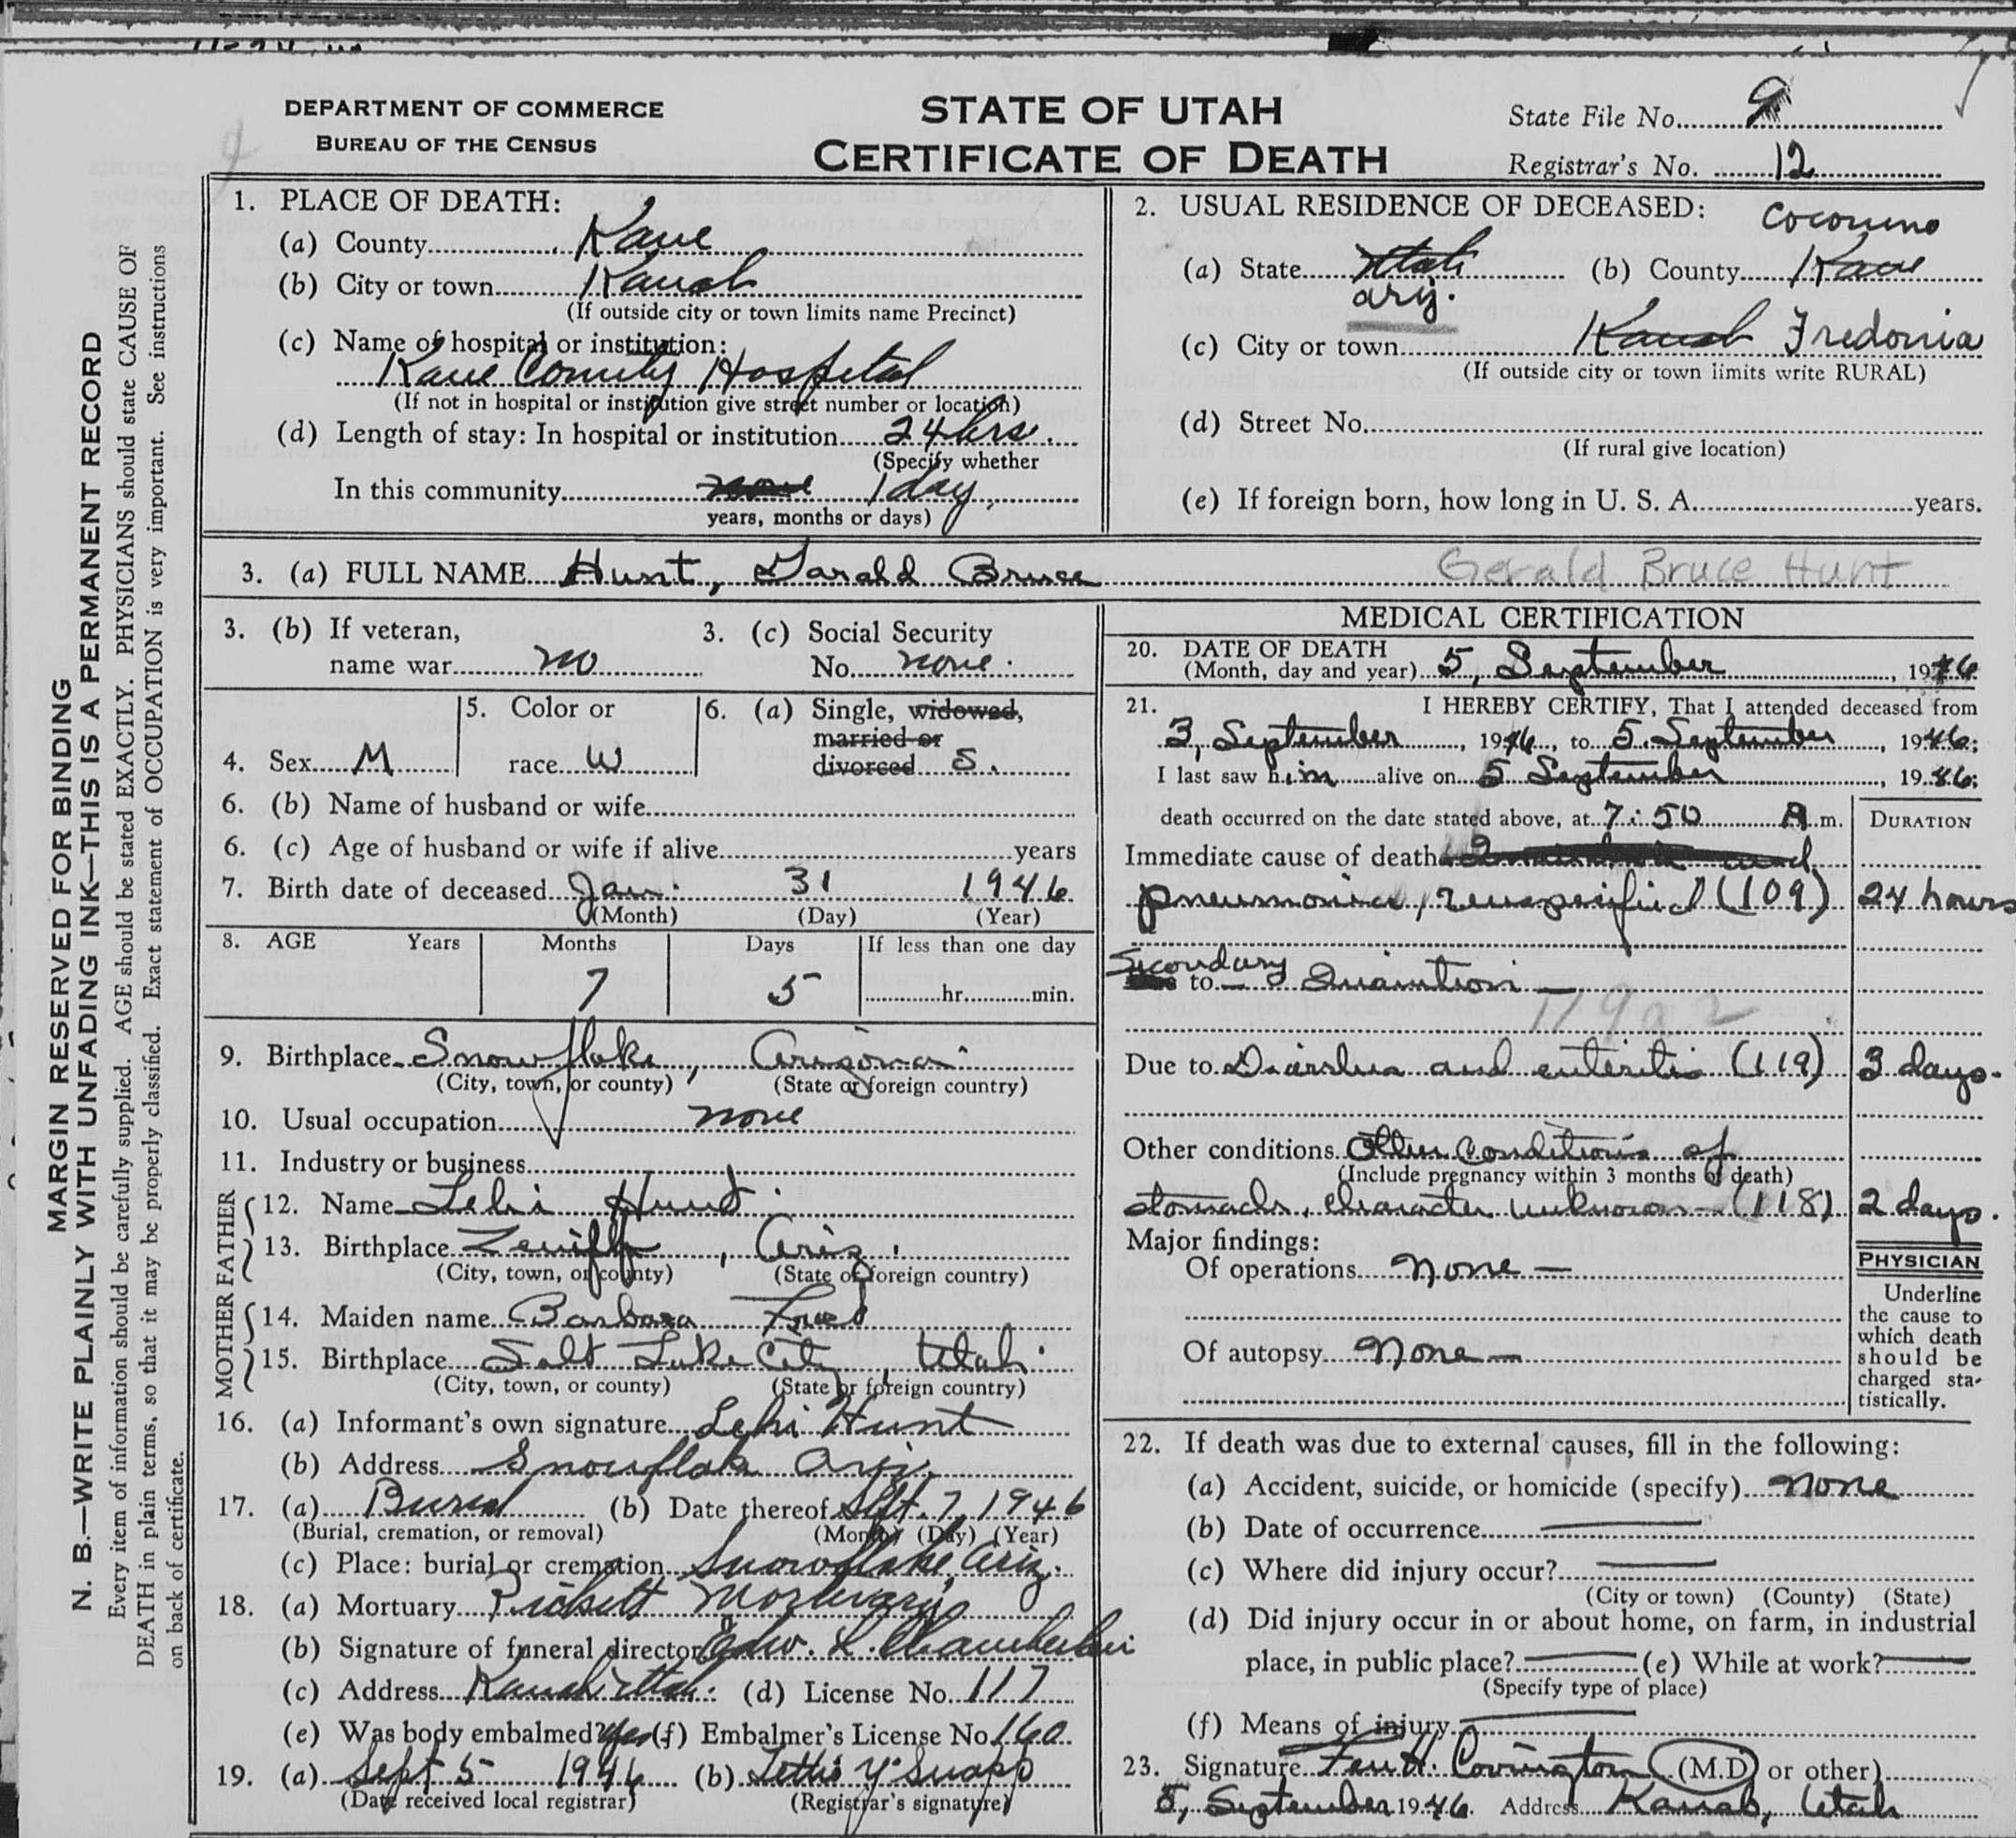 DEPARTMENT OF COMMERCE
BUREAU OF THE CENSUS
STATE OF UTAH
CERTIFICATE OF DEATH
State File No. 9
Registrar's No. 12
MARGIN RESERVED FOR BINDING
N. B.—WRITE PLAINLY WITH UNFADING INK—THIS IS A PERMANENT RECORD
Every item of information should be carefully supplied. AGE should be stated EXACTLY. PHYSICIANS should state CAUSE OF
DEATH in plain terms, so that it may be properly classified. Exact statement of OCCUPATION is very important. See instructions
on back of certificate.
1. PLACE OF DEATH:
(a) County Kane
(b) City or town Kanab
(If outside city or town limits name Precinct)
(c) Name of hospital or institution:
Kane County Hospital
(If not in hospital or institution give street number or location)
(d) Length of stay: In hospital or institution 24 hrs.
(Specify whether
In this community none 1 day
years, months or days)
2. USUAL RESIDENCE OF DECEASED:
Coconino
(a) State Utah (b) County Kane
Ariz.
(c) City or town Kanab Fredonia
(If outside city or town limits write RURAL)
(d) Street No.
(If rural give location)
(e) If foreign born, how long in U. S. A. years.
3. (a) FULL NAME Hunt, Garald Bruce Gerald Bruce Hunt
3. (b) If veteran,
name war no
3. (c) Social Security
No. none.
4. Sex M
5. Color or
race W
6. (a) Single, widowed,
married or
divorced S.
6. (b) Name of husband or wife
6. (c) Age of husband or wife if alive years
7. Birth date of deceased Jan. 31 1946
(Month) (Day) (Year)
8. AGE Years Months Days If less than one day
7 5 hr. min.
9. Birthplace Snowflake, Arizona
(City, town, or county) (State or foreign country)
10. Usual occupation none
11. Industry or business
FATHER
12. Name Lehi Hunt
13. Birthplace , Ariz.
(City, town, or county) (State or foreign country)
MOTHER
14. Maiden name Barbara
15. Birthplace Salt Lake City, Utah
(City, town, or county) (State or foreign country)
16. (a) Informant's own signature Lehi Hunt
(b) Address Snowflake Ariz.
17. (a) Burial (b) Date thereof Sept. 7, 1946
(Burial, cremation, or removal) (Month) (Day) (Year)
(c) Place: burial or cremation Snowflake, Ariz.
18. (a) Mortuary Mortuary
(b) Signature of funeral director Edw. L. Chamberlain
(c) Address Kanab Utah. (d) License No. 117
(e) Was body embalmed? Yes (f) Embalmer's License No. 160
19. (a) Sept 5 1946 (b)
(Date received local registrar) (Registrar's signature)
MEDICAL CERTIFICATION
20. DATE OF DEATH
(Month, day and year) 5, September, 1946
21. I HEREBY CERTIFY, That I attended deceased from
3, September, 1946, to 5, September, 1946;
I last saw him alive on 5 September, 1946;
death occurred on the date stated above, at 7:50 A m.
DURATION
Immediate cause of death and
pneumonia, unspecified (109) 24 hours
Secondary
to— Inanition —
119a2
Due to Diarrhea and enteritis (119) 3 days.
Other conditions Other Conditions of
(Include pregnancy within 3 months of death)
stomach, character unknown—(118) 2 days.
Major findings:
Of operations none —
Of autopsy None —
PHYSICIAN
Underline
the cause to
which death
should be
charged sta-
tistically.
22. If death was due to external causes, fill in the following:
(a) Accident, suicide, or homicide (specify) none
(b) Date of occurrence
(c) Where did injury occur?
(City or town) (County) (State)
(d) Did injury occur in or about home, on farm, in industrial
place, in public place? (e) While at work?
(Specify type of place)
(f) Means of injury
23. Signature H. Covington (M.D) or other)
5, September 1946. Address Kanab, Utah